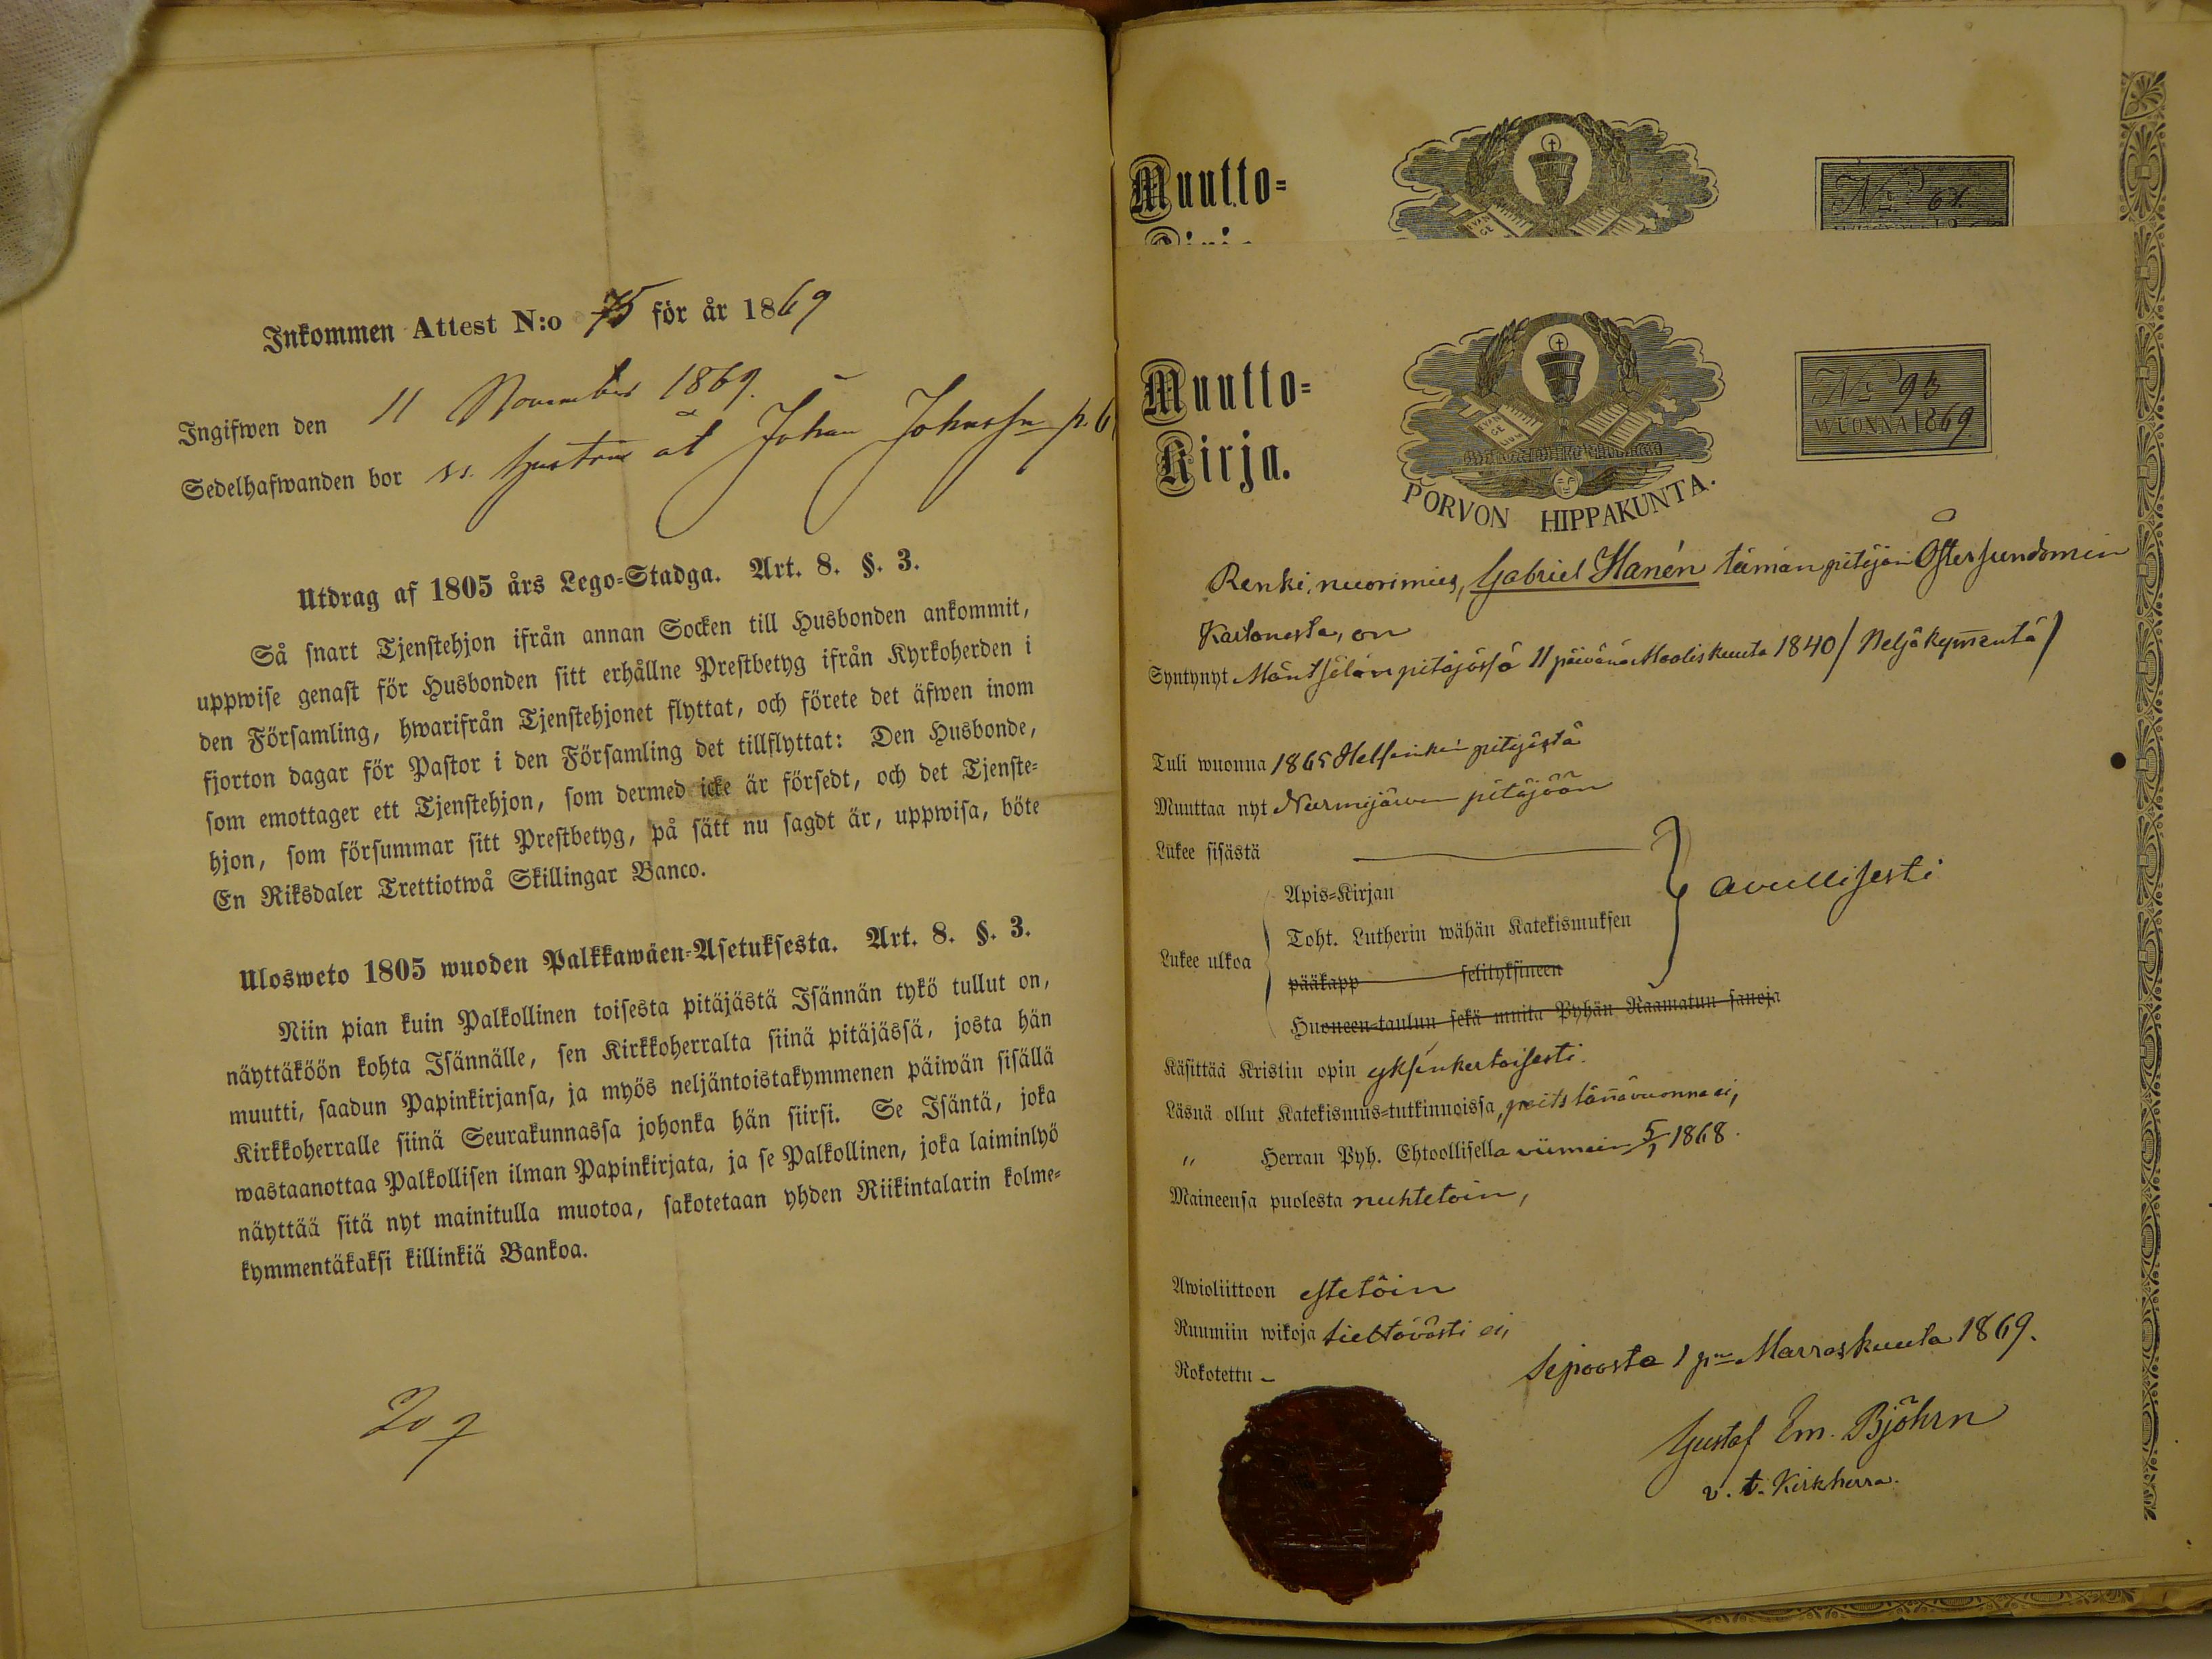 Inkommen Attest N:o 75 för år 1869
Ingifwen den 11 November 1869.
Sedelhafwanden bor ss. hustru åt Johan Johnssn p. 6
Utdrag af 1805 års Lego-Stadga. Art. 8. §. 3.
Så snart Tjenstehjon ifrån annan Socken till Husbonden ankommit,
uppwise genast för Husbonden sitt erhållne Prestbetyg ifrån Kyrkoherden i
den Församling, hwarifrån Tjenstehjonet flyttat, och förete det äfwen inom
fjorton dagar för Pastor i den Församling det tillflyttat: Den Husbonde,
som emottager ett Tjenstehjon, som dermed icke är försedt, och det Tjenste-
hjon, som försummar sitt Prestbetyg, på sätt nu sagdt är, uppwisa, böte
En Riksdaler Trettiotwå Skillingar Banco.
Ulosweto 1805 wuoden Palkkawäen-Asetuksesta. Art. 8. §. 3.
Niin pian kuin Palkollinen toisesta pitäjästä Isännän tykö tullut on,
näyttäköön kohta Isännälle, sen Kirkkoherralta siinä pitäjässä, josta hän
muutti, saadun Papinkirjansa, ja myös neljäntoistakymmenen päiwän sisällä
Kirkkoherralle siinä Seurakunnassa johonka hän siirsi. Se Isäntä, joka
wastaanottaa Palkollisen ilman Papinkirjata, ja se Palkollinen, joka laiminlyö
näyttää sitä nyt mainitulla muotoa, sakotetaan yhden Riikintalarin kolme-
kymmentäkaksi killinkiä Bankoa.
Muutto-
No 67.
Muutto-
Kirja.
EVAN
GE
LIUM
PORVON HIPPAKUNTA.
No 93
WUONNA 1869.
Renki, nuorimies, Gabriel Hanén tämän pitäjän Östersundomin
Kartanosta, on
Syntynyt Mäntsälän pitäjässä 11 päivänä Maaliskuuta 1840 / Neljäkymmentä /
Tuli wuonna 1865 Helsinkin pitäjästä
Muuttaa nyt Nurmijärven pitäjöön
Lukee sisästä
Lukee ulkoa
Apis-Kirjan
Toht. Lutherin wähän Katekismuksen
pääkapp selityksineen
Huoneen-taulun sekä muita Pyhän Raamatun sanoja
avullisesti
Käsittää Kristin opin yksinkertaisesti.
Läsnä ollut Katekismus-tutkinnoissa, paits tänävuonna ei,
" Herran Pyh. Ehtoollisella viimein 5/1 1868.
Maineensa puolesta nuhtetoin,
Awioliittoon estetöin
Ruumiin wikoja tiettävästi ei,
Rokotettu -
Sipoosta 1 pnä Marraskuuta 1869.
Gustaf Em. Björhn
v. t. Kirkherra.